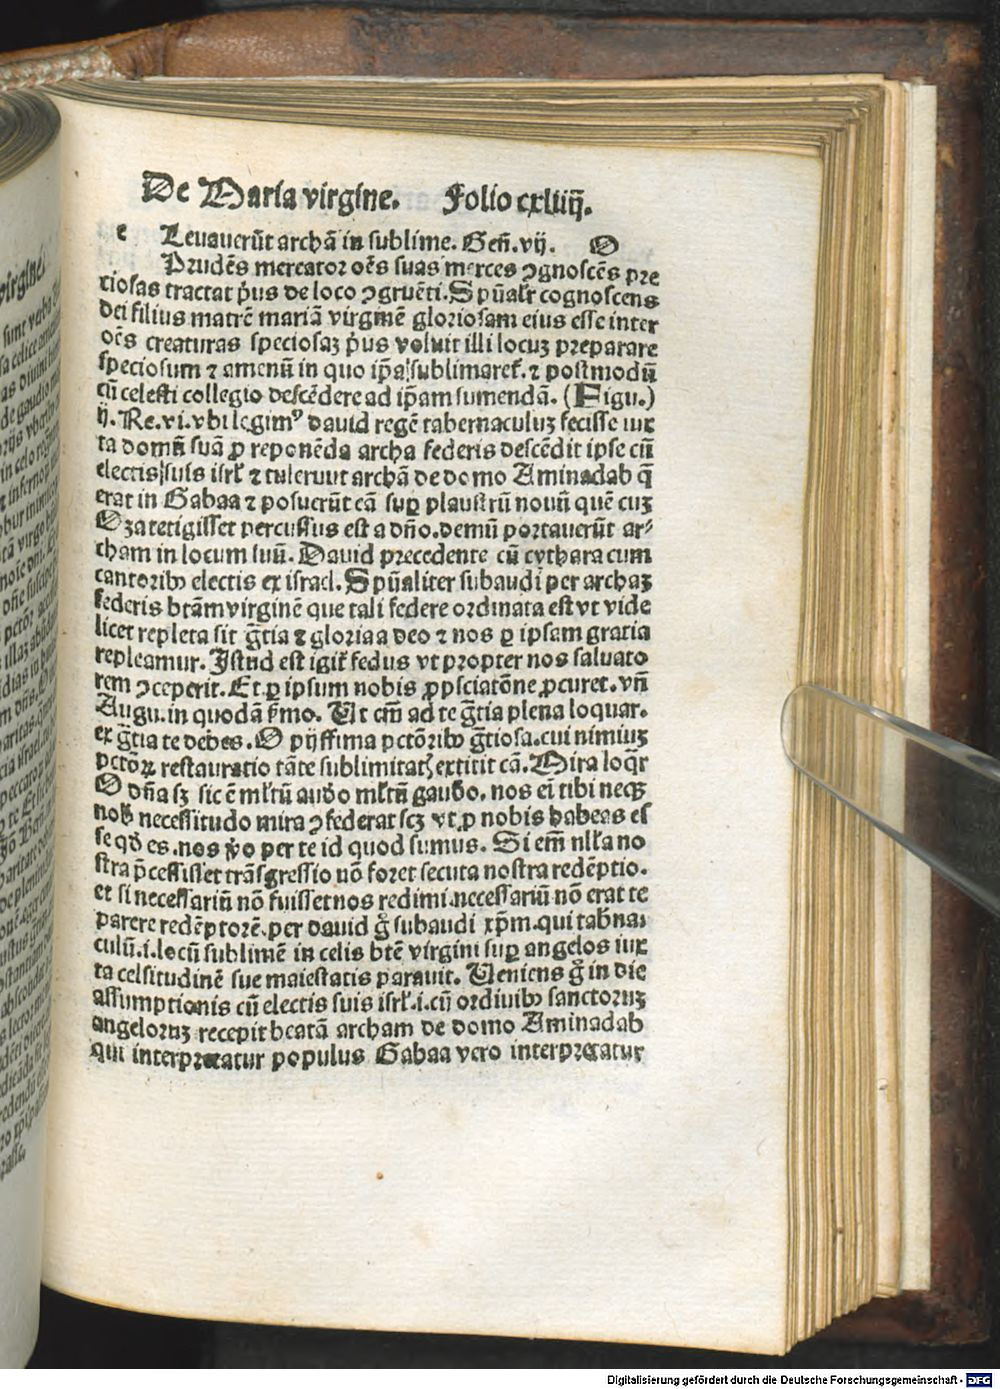 De Maria virgine. Folio cxliiij.
e Leuauerūt archā in sublime. Geñ. vij. O
Prudēs mercator oēs suas merces ꝯgnoscēs pre
ciosas tractat p̄us de loco ꝯgruēti. Spūalr̄ cognoscens
dei filius matrē mariā virginē gloriosam eius esse inter
oēs creaturas speciosaꝫ p̄us voluit illi locuꝫ preparare
speciosum ⁊ amenū in quo ip̄a sublimareť. ⁊ postmodū
cū celesti collegio descēdere ad ip̄am sumendā. (Figu.)
ij. Re. vi. vbi legimꝰ dauid regē tabernaculuꝫ fecisse iux
ta domū suā ꝓ reponēda archa federis descēdit ipse cū
electis suis isrl̄ ⁊ tulerunt archā de domo Aminadab q̄
erat in Gabaa ⁊ posuerūt eā suꝑ plaustrū nouū quē cuꝫ
Oza tetigisset percussus est a dño. demū portauerūt ar⸗
cham in locum suū. Dauid precedente cū cythara cum
cantoribꝰ electis ex israel. Spūaliter subaudi per archaꝫ
federis btām virginē que tali federe ordinata est vt vide
licet repleta sit gr̄tia ⁊ gloria a deo ⁊ nos ꝑ ipsam gratia
repleamur. Istud est igiť fedus vt propter nos saluato
rem ꝯceperit. Et ꝑ ipsum nobis ꝓpiciatōne ꝓcuret. vn̄
Augu. in quodā f̄mo. Ut cm̄ ad te gr̄tia plena loquar.
ex gr̄tia te debes. O pijssima pctōribꝰ gr̄tiosa. cui nimiuꝫ
pctōꝝ restauratio tāte sublimitatꝭ extitit cā. Mira loqr̄
O dn̄a sꝫ sic ē ml̄tū audo ml̄tū gaudo. nos ei tibi neqꝫ
nob̄ necessitudo mira ꝯfederat scꝫ vt ꝑ nobis habeas es
se qd̄ es. nos v̄o per te id quod sumus. Si em̄ nl̄la no
stra p̄cessisset trāsgressio nō foret secuta nostra redēptio.
et si necessariū nō fuisset nos redimi. necessariū nō erat te
parere redēptorē. per dauid g̊ subaudi xp̄m. qui tabn̄a
culū. i. locū sublimē in celis btē virgini suꝑ angelos iux
ta celsitudinē sue maiestatis parauit. Ueniens g̊ in die
assumptionis cū electis suis isrl̄. i. cū ordinibꝰ sanctoruꝫ
angeloruꝫ recepit beatā archam de domo Aminadab
qui interpretatur populus Gabaa vero interpretatur
Digitalisierung gefördert durch die Deutsche Forschungsgemeinschaft - DFG